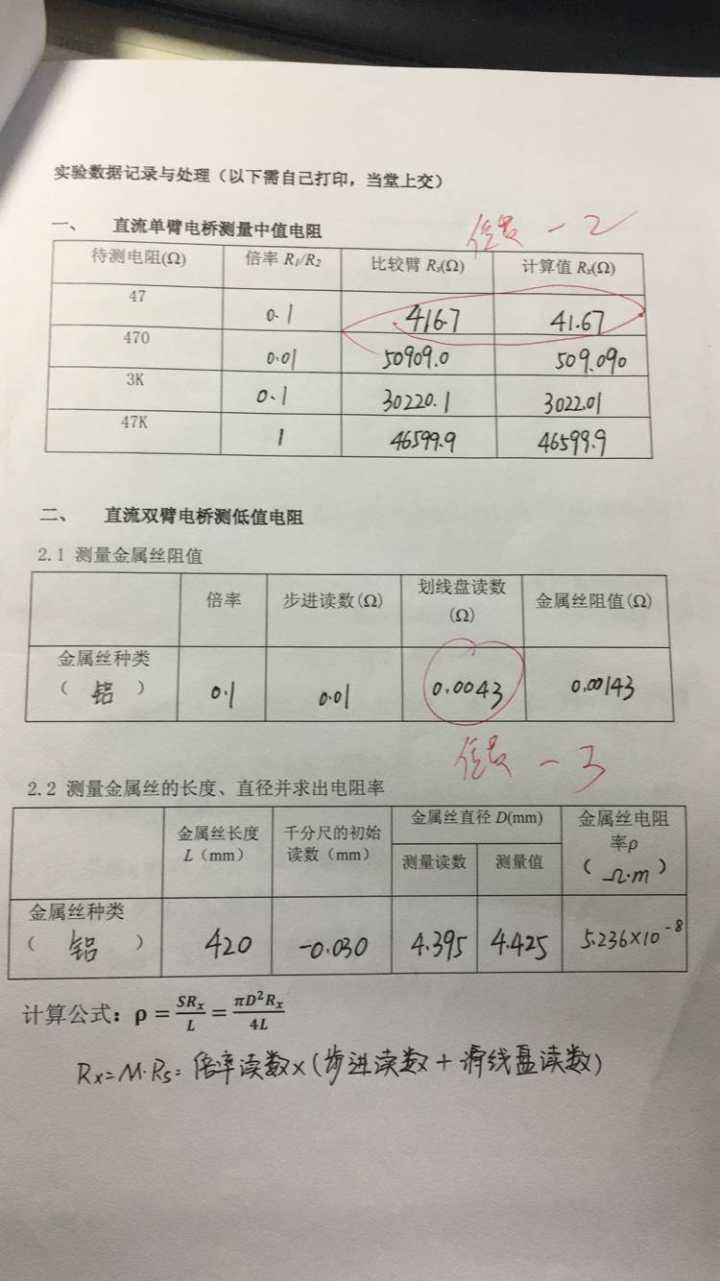 实验数据记录与处理（以下需自己打印，当堂上交）
一、 直流单臂电桥测量中值电阻
-2
待测电阻(Ω) 倍率 R₁/R₂ 比较臂 Rₛ(Ω) 计算值 Rₓ(Ω)
47 0.1 416.7 41.67
470 0.01 50909.0 509.090
3K 0.1 30220.1 3022.01
47K 1 46599.9 46599.9
二、 直流双臂电桥测低值电阻
2.1 测量金属丝阻值
倍率 步进读数(Ω) 划线盘读数(Ω) 金属丝阻值(Ω)
金属丝种类
（ 铝 ） 0.1 0.01 0.0043 0.00143
-3
2.2 测量金属丝的长度、直径并求出电阻率
金属丝长度 L（mm） 千分尺的初始读数（mm） 金属丝直径 D(mm) 金属丝电阻率ρ
测量读数 测量值 （ Ω·m ）
金属丝种类
（ 铝 ） 420 -0.030 4.395 4.425 5.236×10⁻⁸
计算公式：ρ = SRₓ/L = πD²Rₓ/4L
Rx=M·Rs=倍率读数×(步进读数+滑线盘读数)